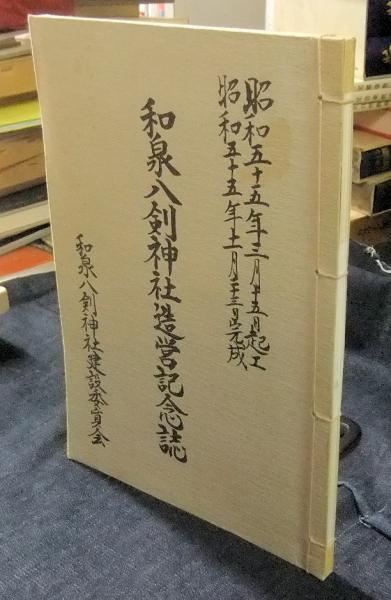 昭和五十五年三月十五日起工
昭和五十五年十一月二十三日完成
和泉八剣神社造営記念誌
和泉八剣神社建設委員会